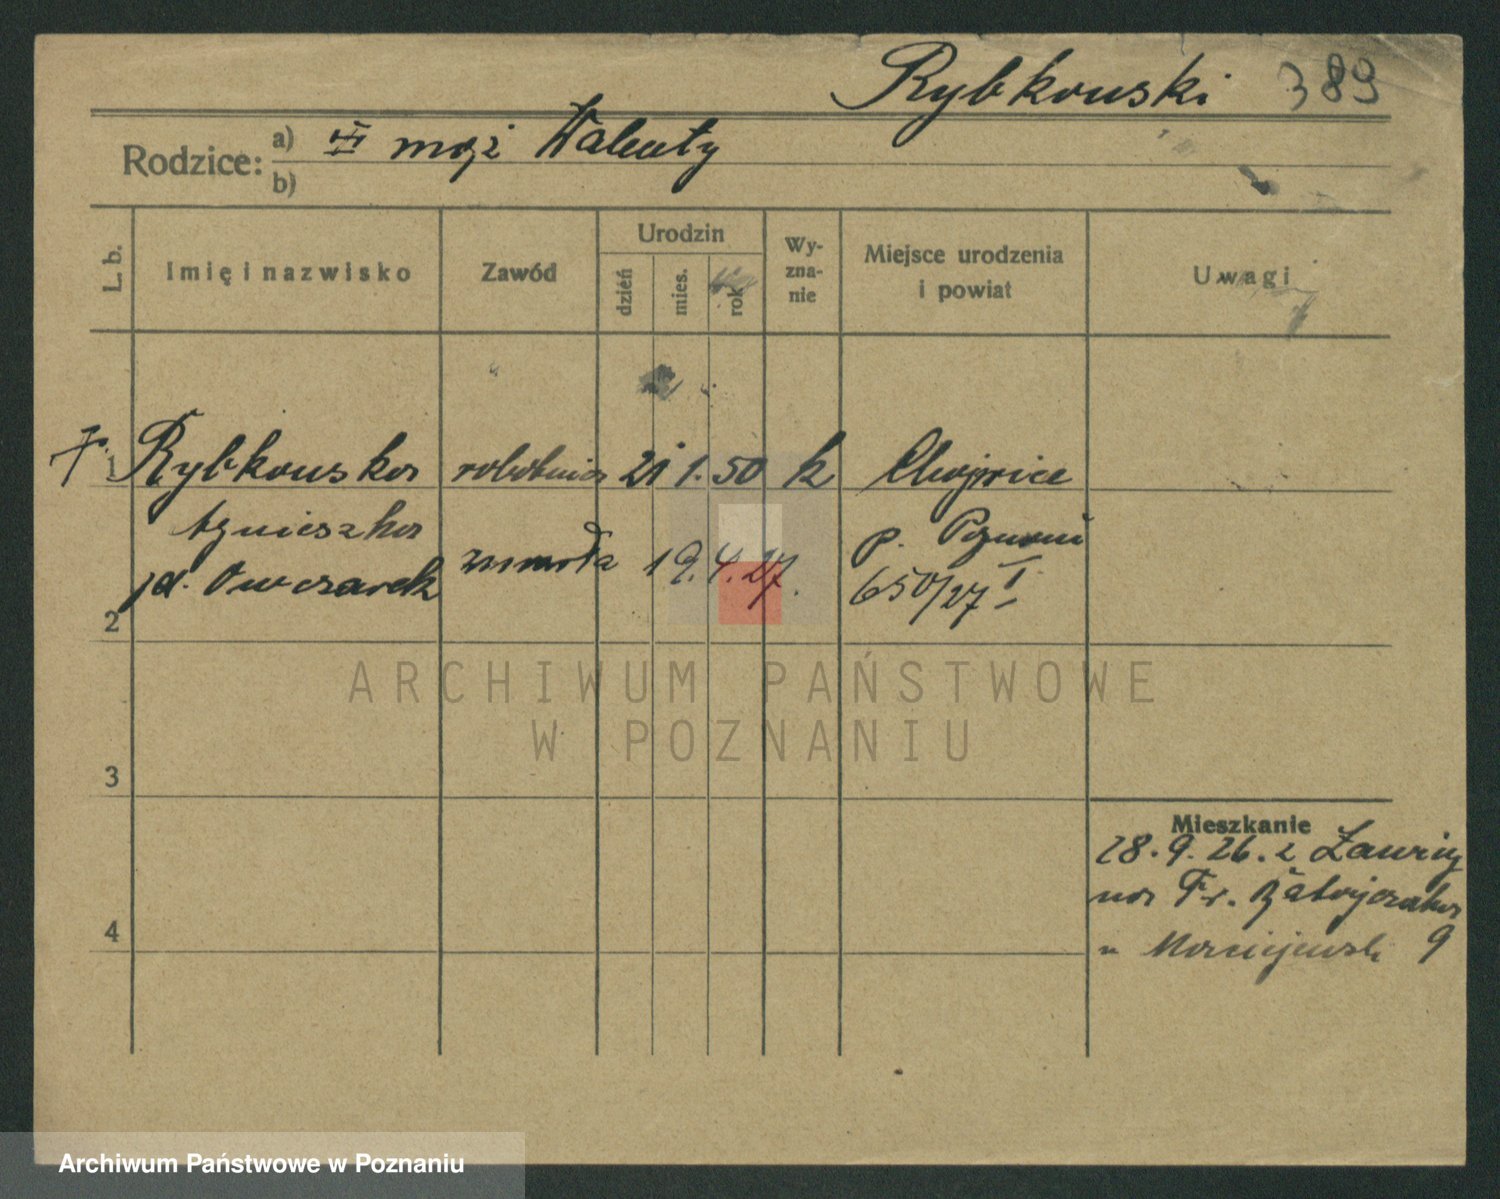 Rybkowski 389
Rodzice: a) III mąż Walenty
b)
L. b.
Imię i nazwisko
Zawód
Urodzin
dzień
mies.
rok
Wy-
zna-
nie
Miejsce urodzenia
i powiat
Uwagi
1 Rybkowska robotnica 21 1. 50 k Chojnice
Agnieszka p. Poznań
zmarła 19.4.27.
id. Owczarek 650/27 I
2
3
4
Mieszkanie
28.9.26. z Ławicy
na Fr. Ratajczaka
u 9
ARCHIWUM PAŃSTWOWE
W POZNANIU
Archiwum Państwowe w Poznaniu